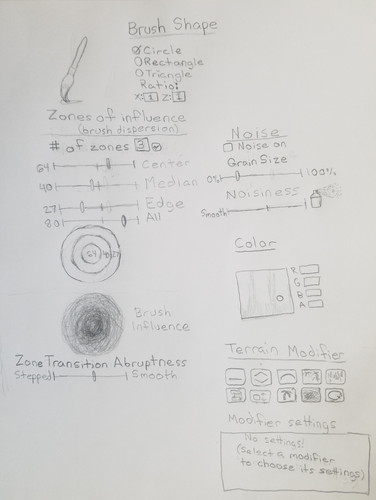 Brush Shape
Circle
Rectangle
Triangle
Ratio:
X: 1 Z: 1
Zones of influence
(brush dispersion)
# of zones 3
64 Center
40 Median
27 Edge
80 All
64 40 27
Brush
Influence
Zone Transition Abruptness
Stepped Smooth
Noise
Noise on
Grain Size
0% 100%
Noisiness
Smooth
Color
R
G
B
A
Terrain Modifier
Modifier settings
No settings!
(Select a modifier
to choose its settings)